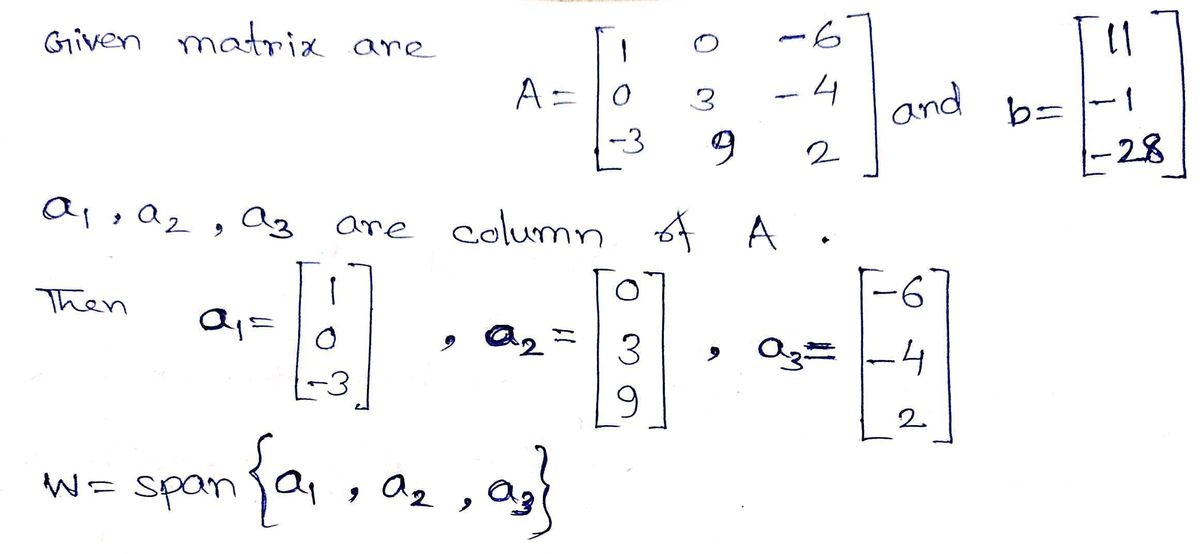 Given matrix are A = [1 0 -6; 0 3 -4; -3 9 2] and b = [11; -1; -28]
a1, a2, a3 are column of A.
Then a1 = [1; 0; -3], a2 = [0; 3; 9], a3 = [-6; -4; 2]
W = span {a1, a2, a3}